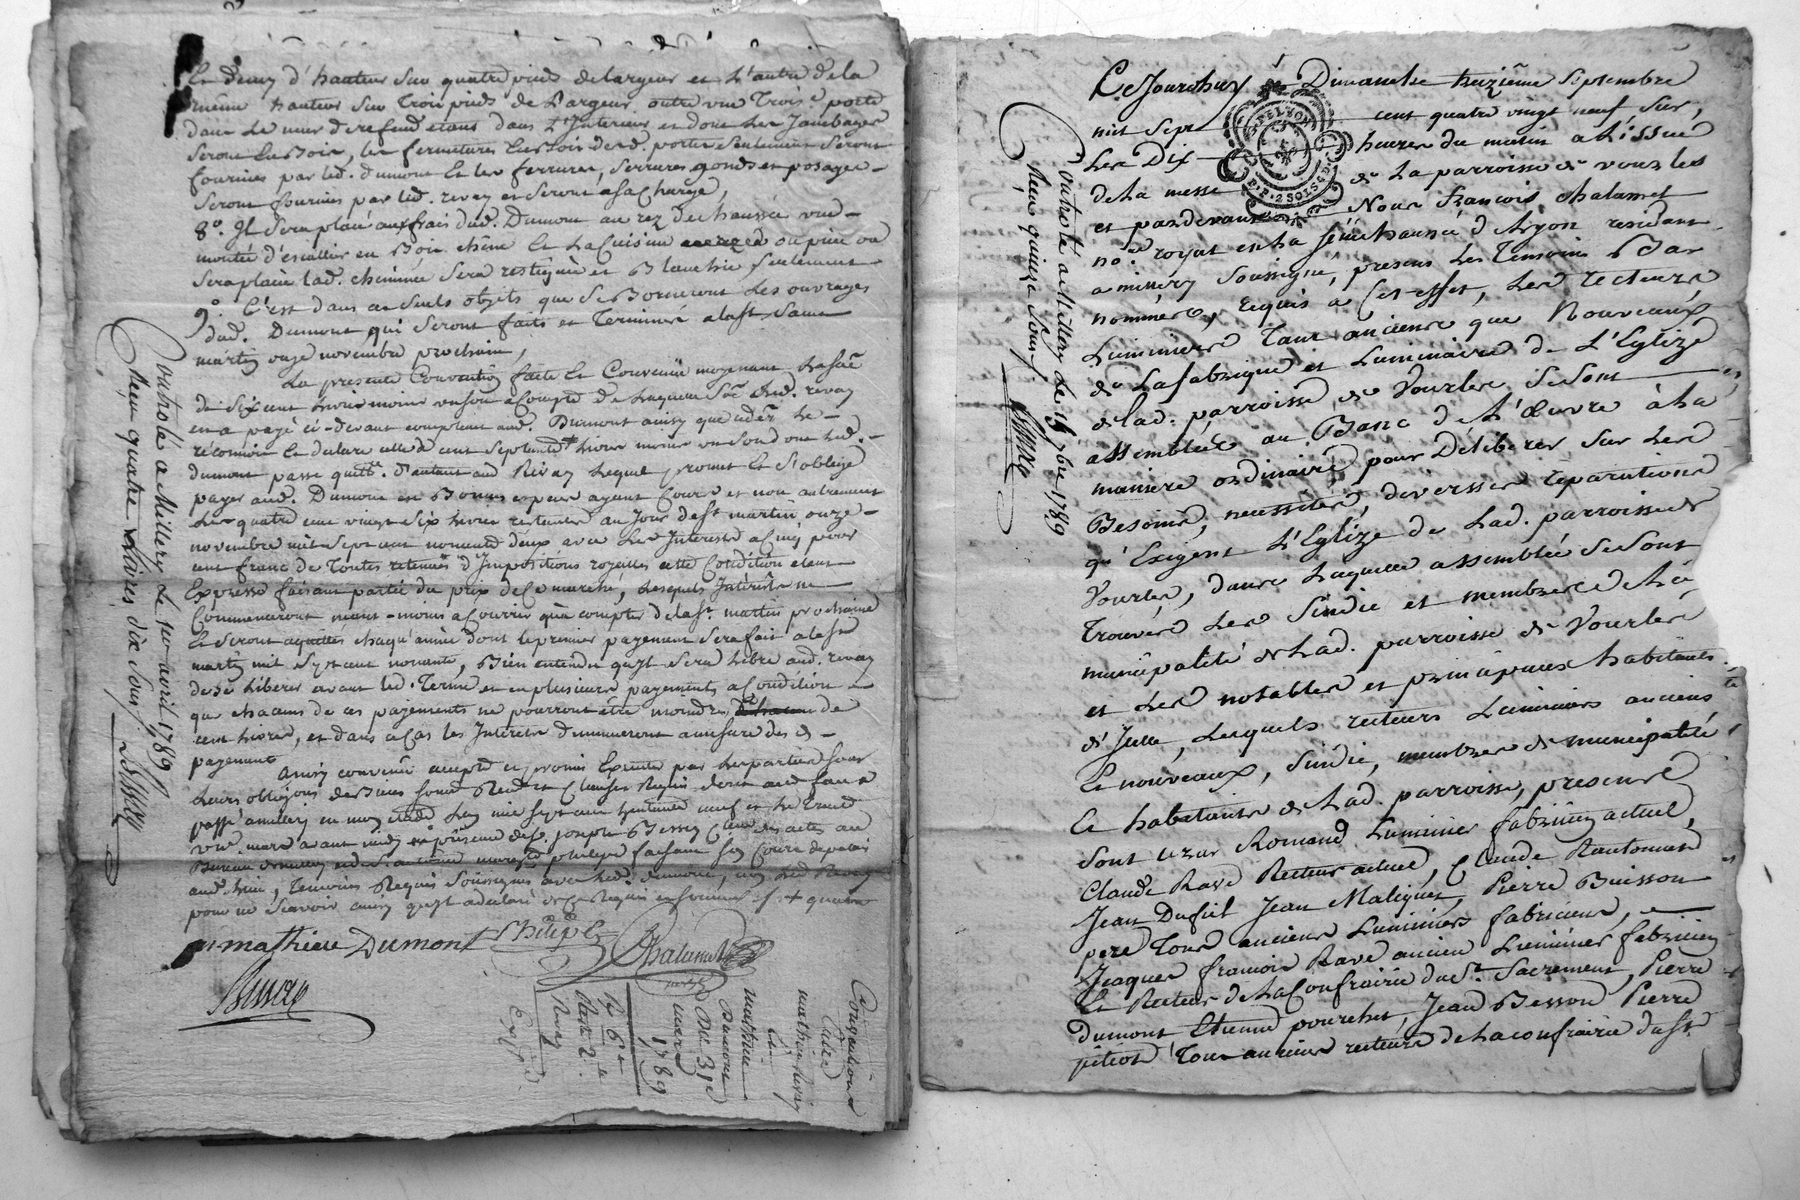 Et demy d'hauteur sur quatre pieds de largeur et L'autre de la
même hauteur sur Trois pieds de Largeur outre une Trois.e porte
dans Le mur de refend etant dans L'Interieur et dont Les Jambages
seront En Bois, les fermetures En bois desd. portes seulement seront
fournies par led. dumont Et les ferrures, serrures gonds et posages
seront fournies par led. revay et seront a sa Charge,
8.o Il sera placé aux frais dud. Dumont au rez de chaussée une
montée d'escallier en Bois chene Et La Cuisine ou piece ou
sera placée lad. cheminée sera restiquée et Blanchie seulement
9.o C'est dans ces seuls objets que se Borneront Les ouvrages
dud. Dumont qui seront faits et Terminés a la st Saint
martin onze novembre prochain,
La presente Convention faite Et Convenüe moyenant La Sme
de six cent trois moins un sou a Compte de Laquelle Sme Led. revay
en a payé ci-devant comptant aud. Dumont ainsy que ader Le
réconnoit Et declare celle de cent septante livres moins un sou dont Led.
dumont passe quittce. d'autant aud Revay Lequel promet Et s'oblige
payer aud. Dumont en Bonnes especes ayant Cours et non autrement
Les quatre cent vingt six livres restantes au Jour de st martin onze
novembre mil sept cent nonante deux avec Les Interests a Cinq pour
cent franc de Toutes retenües d'Impositions royalles cette Condition etant
Expresse faisant partie du prix de Ce marché, Lesquels Intérêts ne
Commenceront neant-moins a Courrir qu'a compter de la st. martin prochaine
Et seront acquittés chaqu'année dont le premier payement sera fait a la st
martin mil sept cent nonante, Bien entendu qu'il sera Libre aud. revay
de se Liberer avant led. Terme et en plusieurs payements a Condition
que chacuns de ces payements ne pourront être moindres de
cent Livres, et dans ce cas les Interets diminueront a mesure des
payement
Ainsy convenü accepté et promis Executer par les parties sous
Leurs obligons de Biens soumis Rendt et Clauses Requis dont acte fait et
passé a millery en mon etude L'an mil sept cent huitante neuf et Le Trente
un. mars avant midy en présence de sr. joseph Bessey Cteur des actes au
Bureau de millery y demeurant et de philipe faisant ses Cours de palais
aud. Lieu, temoins Requis soussignés avec Led. dumont, non Led Revay
pour ne sçavoir ainsy qu'il a declaré de ce Requis
mathieu Dumont Philip Chalamet
Bessey
Controlé a Millery Le 10 avril 1789
Reçu quatre Livres dix sous
Bessey
Convention
Entre
mathieu Revay
Et
mathieu
Dumont
Du 31e
mars
1789
Revay
Expedié
Ce Jourdhuy Dimanche treizième Septembre
mil sept cent quatre vingt neuf, sur,
Les Dix heures du matin a L'issüe
de La messe de La parroisse de vourles
et pardevant Nous François Chalamet
no.re royal en La Sénéchaussée de Lyon residant
a millery soussigné, present Les Temoins Bas
nommés, requis a Cet effet, Les recteurs
Luminiers Tant anciens que Nouveaux
de La fabrique et Luminaire de L'Eglize
de Lad. parroisse de Vourles se sont
assemblés au Banc de L'Œuvre à La
maniere ordinaire, pour Déliberer sur Les
Besoins, necessités, diverses reparations
qu'Exigent L'Eglize de Lad. parroisse de
Vourles, dans Laquelle assemblée se sont
Trouvés Les Sindic et membres de La
municipalité de Lad. parroisse de Vourles
et Les notables et principaux habitants
d'Icelle, Lesquels recteurs Luminiers anciens
Et nouveaux, Sindic, membres de municipalité
Et habitants de Lad. parroisse, presents
Sont Cezar Romand Luminier fabricien actuel,
Claude Ravé Recteur actuel, Claude
Jean Dufiet Jean Maliquet, Pierre Buisson
pere Tous anciens Luminiers fabriciens,
Jaques françois Ravé ancien Luminier fabricien
Et Recteur de La Confrairie du St. Sacrement, Pierre
dumont Etienne pourchet, Jean Besson Pierre
pitiot Tous anciens recteurs de La confrairie du St
Controlé a Millery Le 15 7bre 1789
Reçu quinze Sous.
Bessey